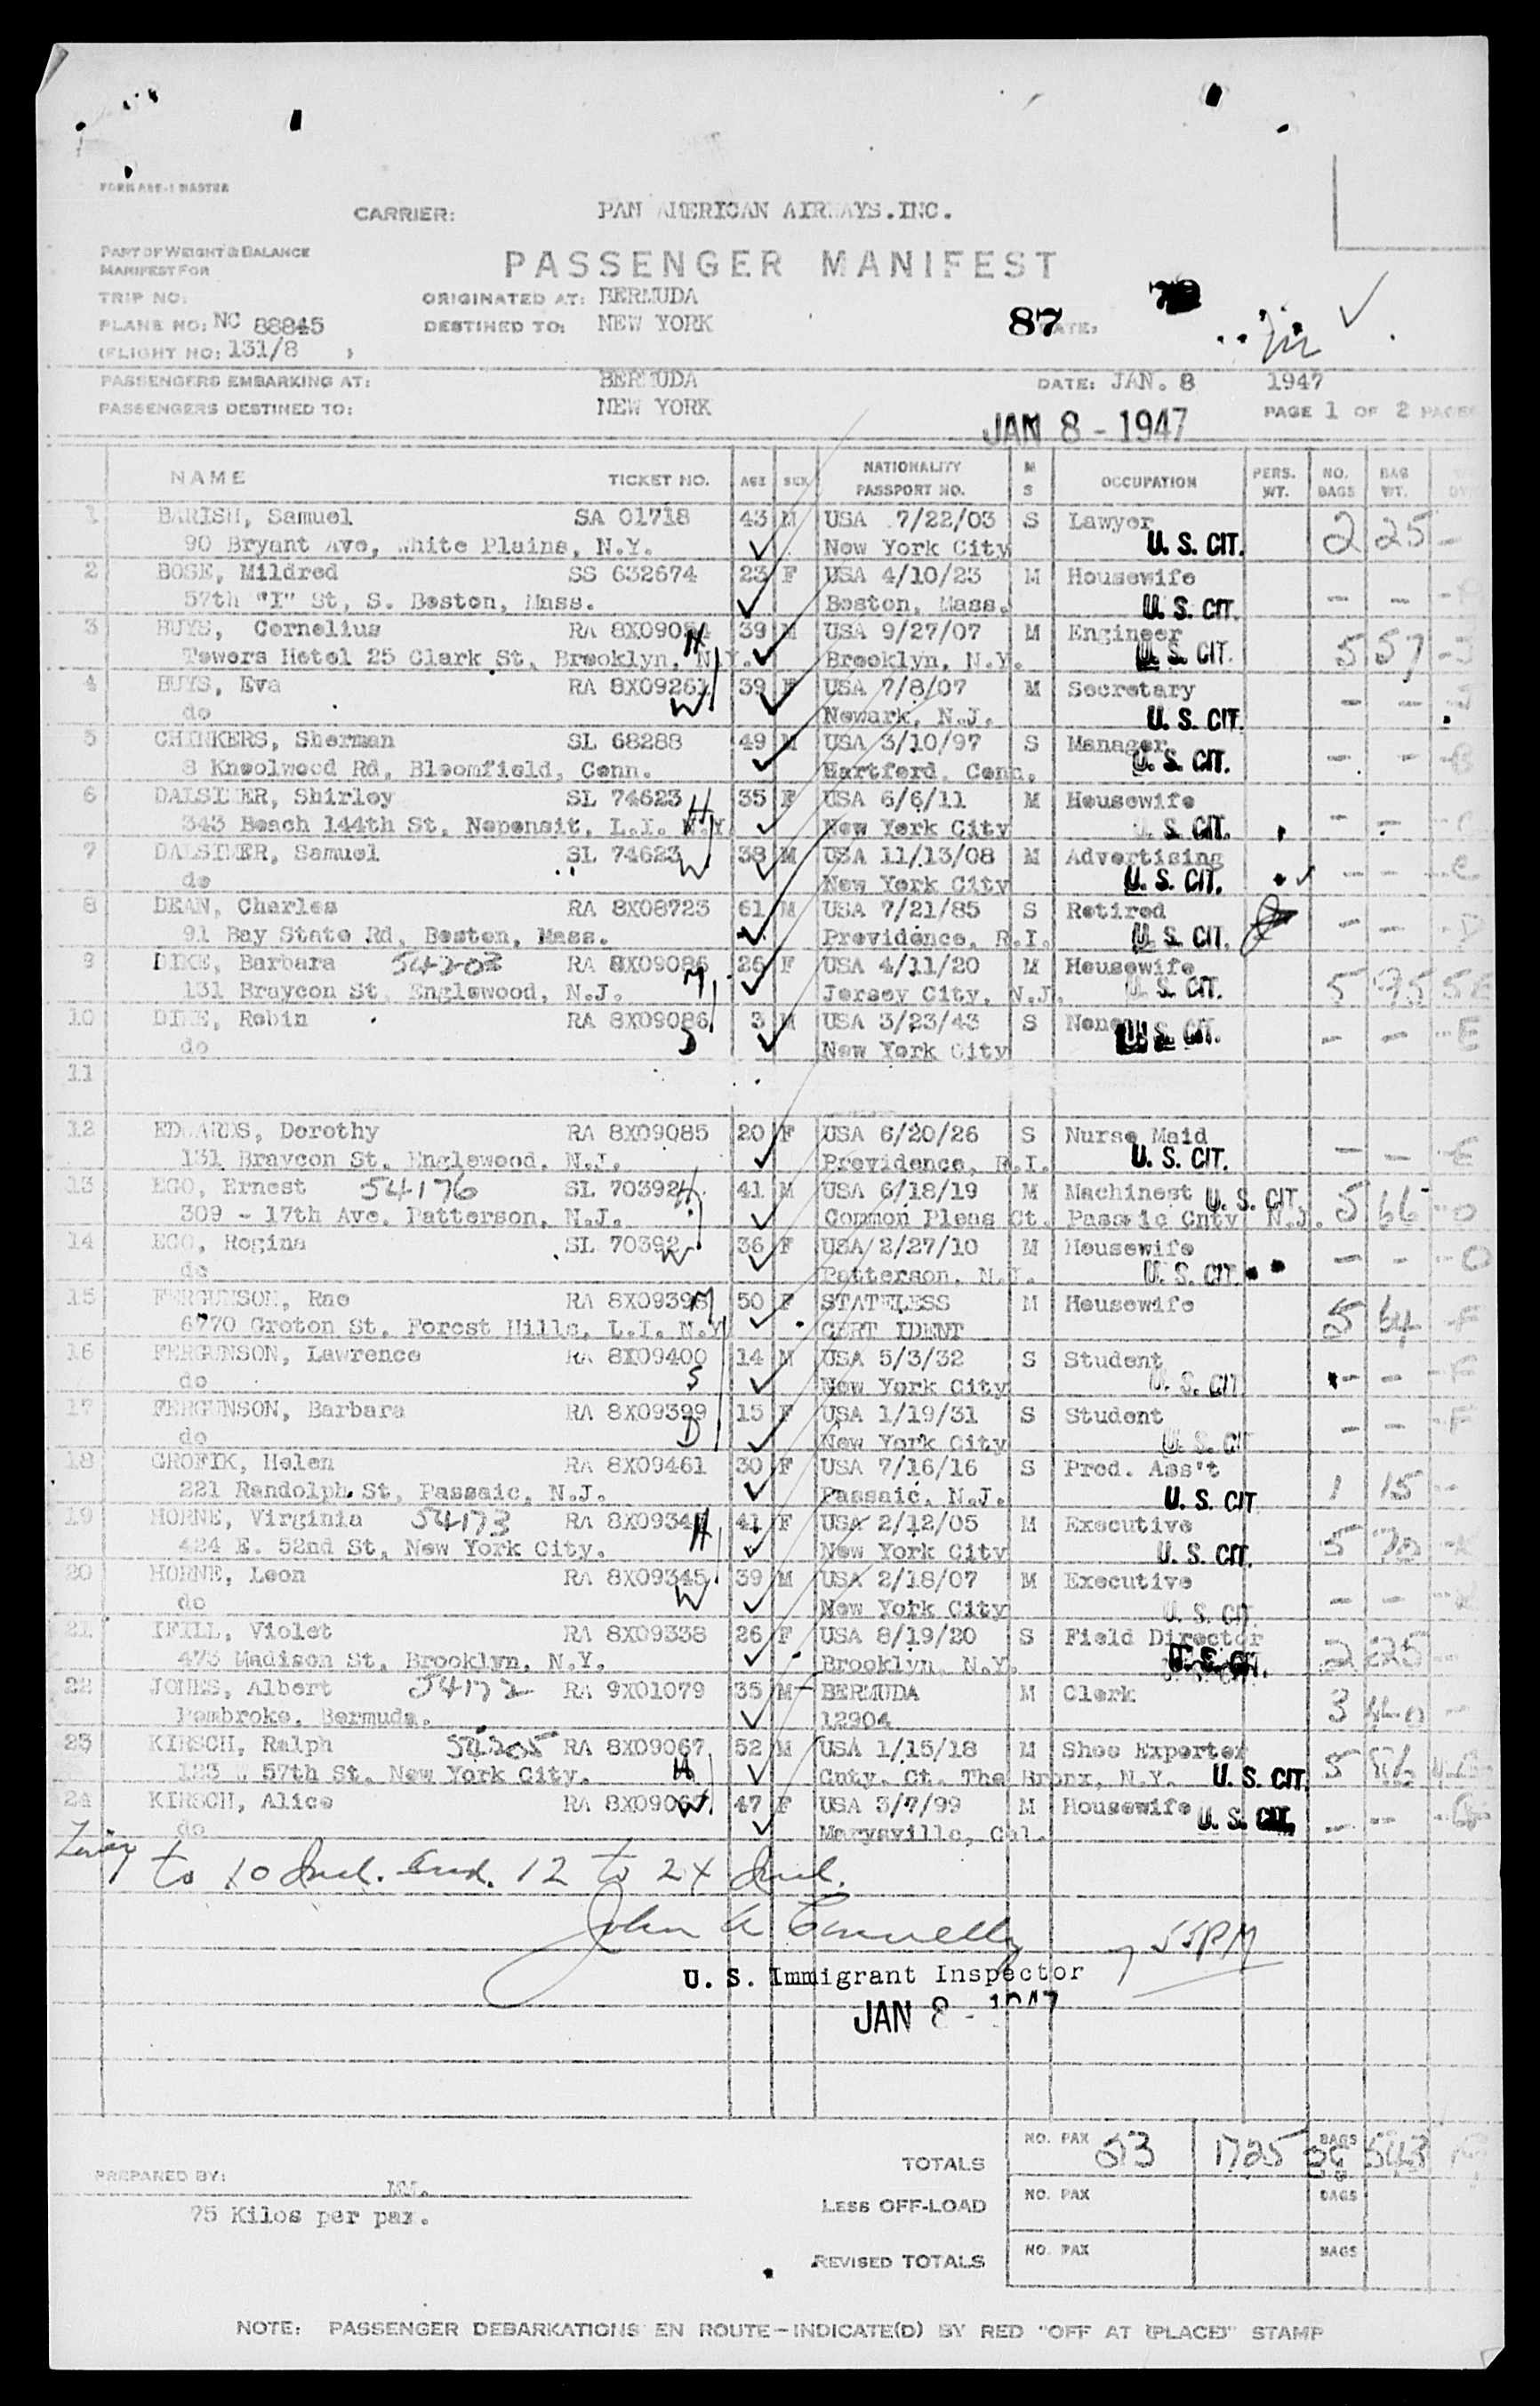 FORM ABE-1 MASTER
CARRIER: PAN AMERICAN AIRWAYS.INC.
PART OF WEIGHT & BALANCE
MANIFEST FOR
PASSENGER MANIFEST
TRIP NO:
ORIGINATED AT: BERMUDA
PLANE NO: NC 88845
DESTINED TO: NEW YORK
87 DATE:
(FLIGHT NO: 131/8 )
PASSENGERS EMBARKING AT: BERMUDA
DATE: JAN. 8 1947
PASSENGERS DESTINED TO: NEW YORK
PAGE 1 OF 2 PAGES
JAN 8 - 1947
NAME TICKET NO. AGE SEX NATIONALITY PASSPORT NO. M S OCCUPATION PERS. WT. NO. BAGS BAG WT.
1 BARISH, Samuel SA 01718 43 M USA 7/22/03 S Lawyer 2 25 -
90 Bryant Ave, White Plains, N.Y. New York City U. S. CIT.
2 BOSE, Mildred SS 632674 23 F USA 4/10/23 M Housewife - -
57th "I" St, S. Boston, Mass. Boston, Mass. U. S. CIT.
3 BUYS, Cornelius RA 8X09054 39 M USA 9/27/07 M Engineer 5 57 -J
Towers Hotel 25 Clark St, Brooklyn, N.Y. H Brooklyn, N.Y. U. S. CIT.
4 BUYS, Eva RA 8X09261 39 F USA 7/8/07 M Secretary - - -J
do W Newark, N.J. U. S. CIT.
5 CHINKERS, Sherman SL 68288 49 M USA 3/10/97 S Manager - - -B
8 Knoolwood Rd, Bloomfield, Conn. Hartford, Conn. U. S. CIT.
6 DALSIMER, Shirley SL 74623 H 35 F USA 6/6/11 M Housewife - - -C
343 Beach 144th St, Neponsit, L.I. N.Y. New York City U. S. CIT.
7 DALSIMER, Samuel SL 74623 W 38 M USA 11/13/08 M Advertising - - -C
do New York City U. S. CIT.
8 DEAN, Charles RA 8X08723 61 M USA 7/21/85 S Retired - - -D
91 Bay State Rd, Boston, Mass. Providence, R.I. U. S. CIT.
9 DIKE, Barbara 54203 RA 8X09086 26 F USA 4/11/20 M Housewife 5 75 5E
131 Braycon St, Englewood, N.J. M Jersey City, N.J. U. S. CIT.
10 DIKE, Robin RA 8X09086 3 M USA 3/23/43 S None - - -E
do S New York City U. S. CIT.
11
12 EDWARDS, Dorothy RA 8X09085 20 F USA 6/20/26 S Nurse Maid - - -E
131 Braycon St, Englewood, N.J. Providence, R.I. U. S. CIT.
13 EGO, Ernest 54176 SL 70392 H 41 M USA 6/18/19 M Machinest U. S. CIT. 5 66 -O
309 - 17th Ave, Patterson, N.J. Common Pleas Ct. Passaic Cnty N.J.
14 EGO, Regina SL 70392 W 36 F USA 2/27/10 M Housewife - - -O
do Patterson, N.J. U. S. CIT.
15 FERGUNSON, Rae RA 8X09398 M 50 F STATELESS M Housewife 5 64 -F
6770 Groton St, Forest Hills, L.I. N.Y. CERT IDENT
16 FERGUNSON, Lawrence RA 8X09400 14 M USA 5/3/32 S Student - - -F
do S New York City U. S. CIT
17 FERGUNSON, Barbara RA 8X09399 15 F USA 1/19/31 S Student - - -F
do D New York City U. S. CIT
18 GROFIK, Helen RA 8X09461 30 F USA 7/16/16 S Prod. Ass't 1 15 -
221 Randolph St, Passaic, N.J. Passaic, N.J. U. S. CIT
19 HORNE, Virginia 54173 RA 8X09344 41 F USA 2/12/05 M Executive 5 70 -K
424 E. 52nd St, New York City. H New York City U. S. CIT.
20 HORNE, Leon RA 8X09345 39 M USA 2/18/07 M Executive - - -K
do W New York City U. S. CIT
21 IFILL, Violet RA 8X09338 26 F USA 8/19/20 S Field Director 2 25 -
473 Madison St, Brooklyn, N.Y. Brooklyn, N.Y. U. S. CIT.
22 JONES, Albert 54172 RA 9X01079 35 M BERMUDA M Clerk 3 40 -
Pembroke, Bermuda. 12904
23 KIRSCH, Ralph 54205 RA 8X09067 52 M USA 1/15/18 M Shoe Exporter 5
57th St, New York City. H Cnty. Ct. The Bronx, N.Y. U. S. CIT.
24 KIRSCH, Alice RA 8X09067 W 47 F USA 3/7/99 M Housewife U. S. CIT. - - -G
do Marysville, Cal.
to 10 Incl. and. 12 to 24 Incl.
John A Connelly 7 55PM
U. S. Immigrant Inspector
JAN 8 - 1947
TOTALS NO. PAX 23 1725 BAGS 543
PREPARED BY:
LESS OFF-LOAD NO. PAX BAGS
75 Kilos per pax.
REVISED TOTALS NO. PAX BAGS
NOTE: PASSENGER DEBARKATIONS EN ROUTE-INDICATE(D) BY RED "OFF AT (PLACE)" STAMP